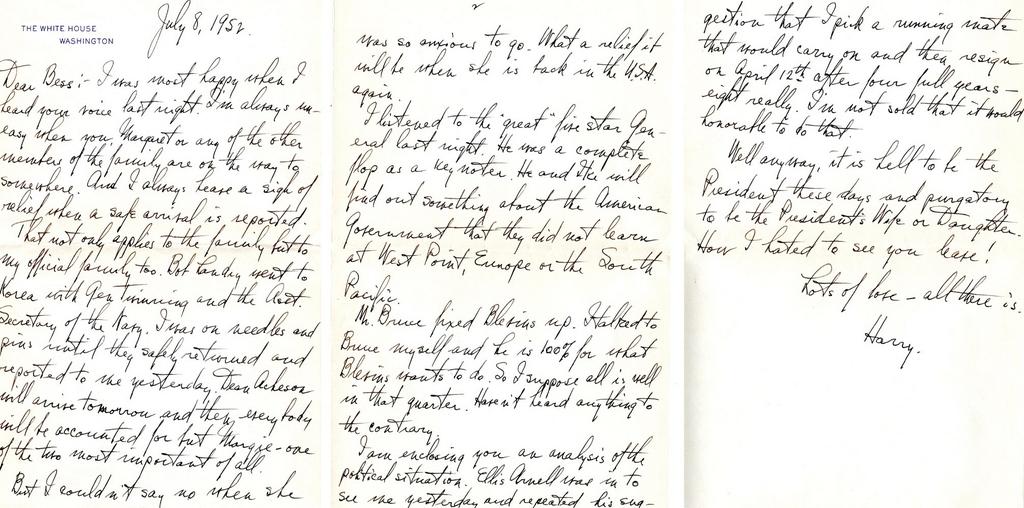 THE WHITE HOUSE
WASHINGTON
July 8, 1952.
Dear Bess:- I was most happy when I
heard your voice last night. I'm always un-
easy when you, Margaret or any of the other
members of the family are on the way to
somewhere. And I always heave a sigh of
relief when a safe arrival is reported.
That not only applies to the family but to
my official family too. Bob Landry went to
Korea with Gen Twinning and the Asst.
Secretary of the Navy. I was on needles and
pins until they safely returned and
reported to me yesterday. Dean Acheson
will arrive tomorrow and then everybody
will be accounted for but Margie - one
of the two most important of all.
But I couldn't say no when she
2
was so anxious to go. What a relief it
will be when she is back in the U.S.A.
again.
I listened to the "great" five star Gen-
eral last night. He was a complete
flop as a keynoter. He and Ike will
find out something about the American
Government that they did not learn
at West Point, Europe or the South
Pacific.
Mr. Bruce fixed Blevins up. I talked to
Bruce myself and he is 100% for what
Blevins wants to do. So I suppose all is well
in that quarter. Haven't heard anything to
the contrary.
I am enclosing you an analysis of the
political situation. Ellis Arnell was in to
see me yesterday and repeated his sug-
gestion that I pick a running mate
that would carry on and then resign
on April 12th after four full years -
eight really. I'm not sold that it would
honorable to do that.
Well anyway, it is hell to be the
President these days and purgatory
to be the President's Wife or Daughter.
How I hated to see you leave!
Lots of love - all there is.
Harry.